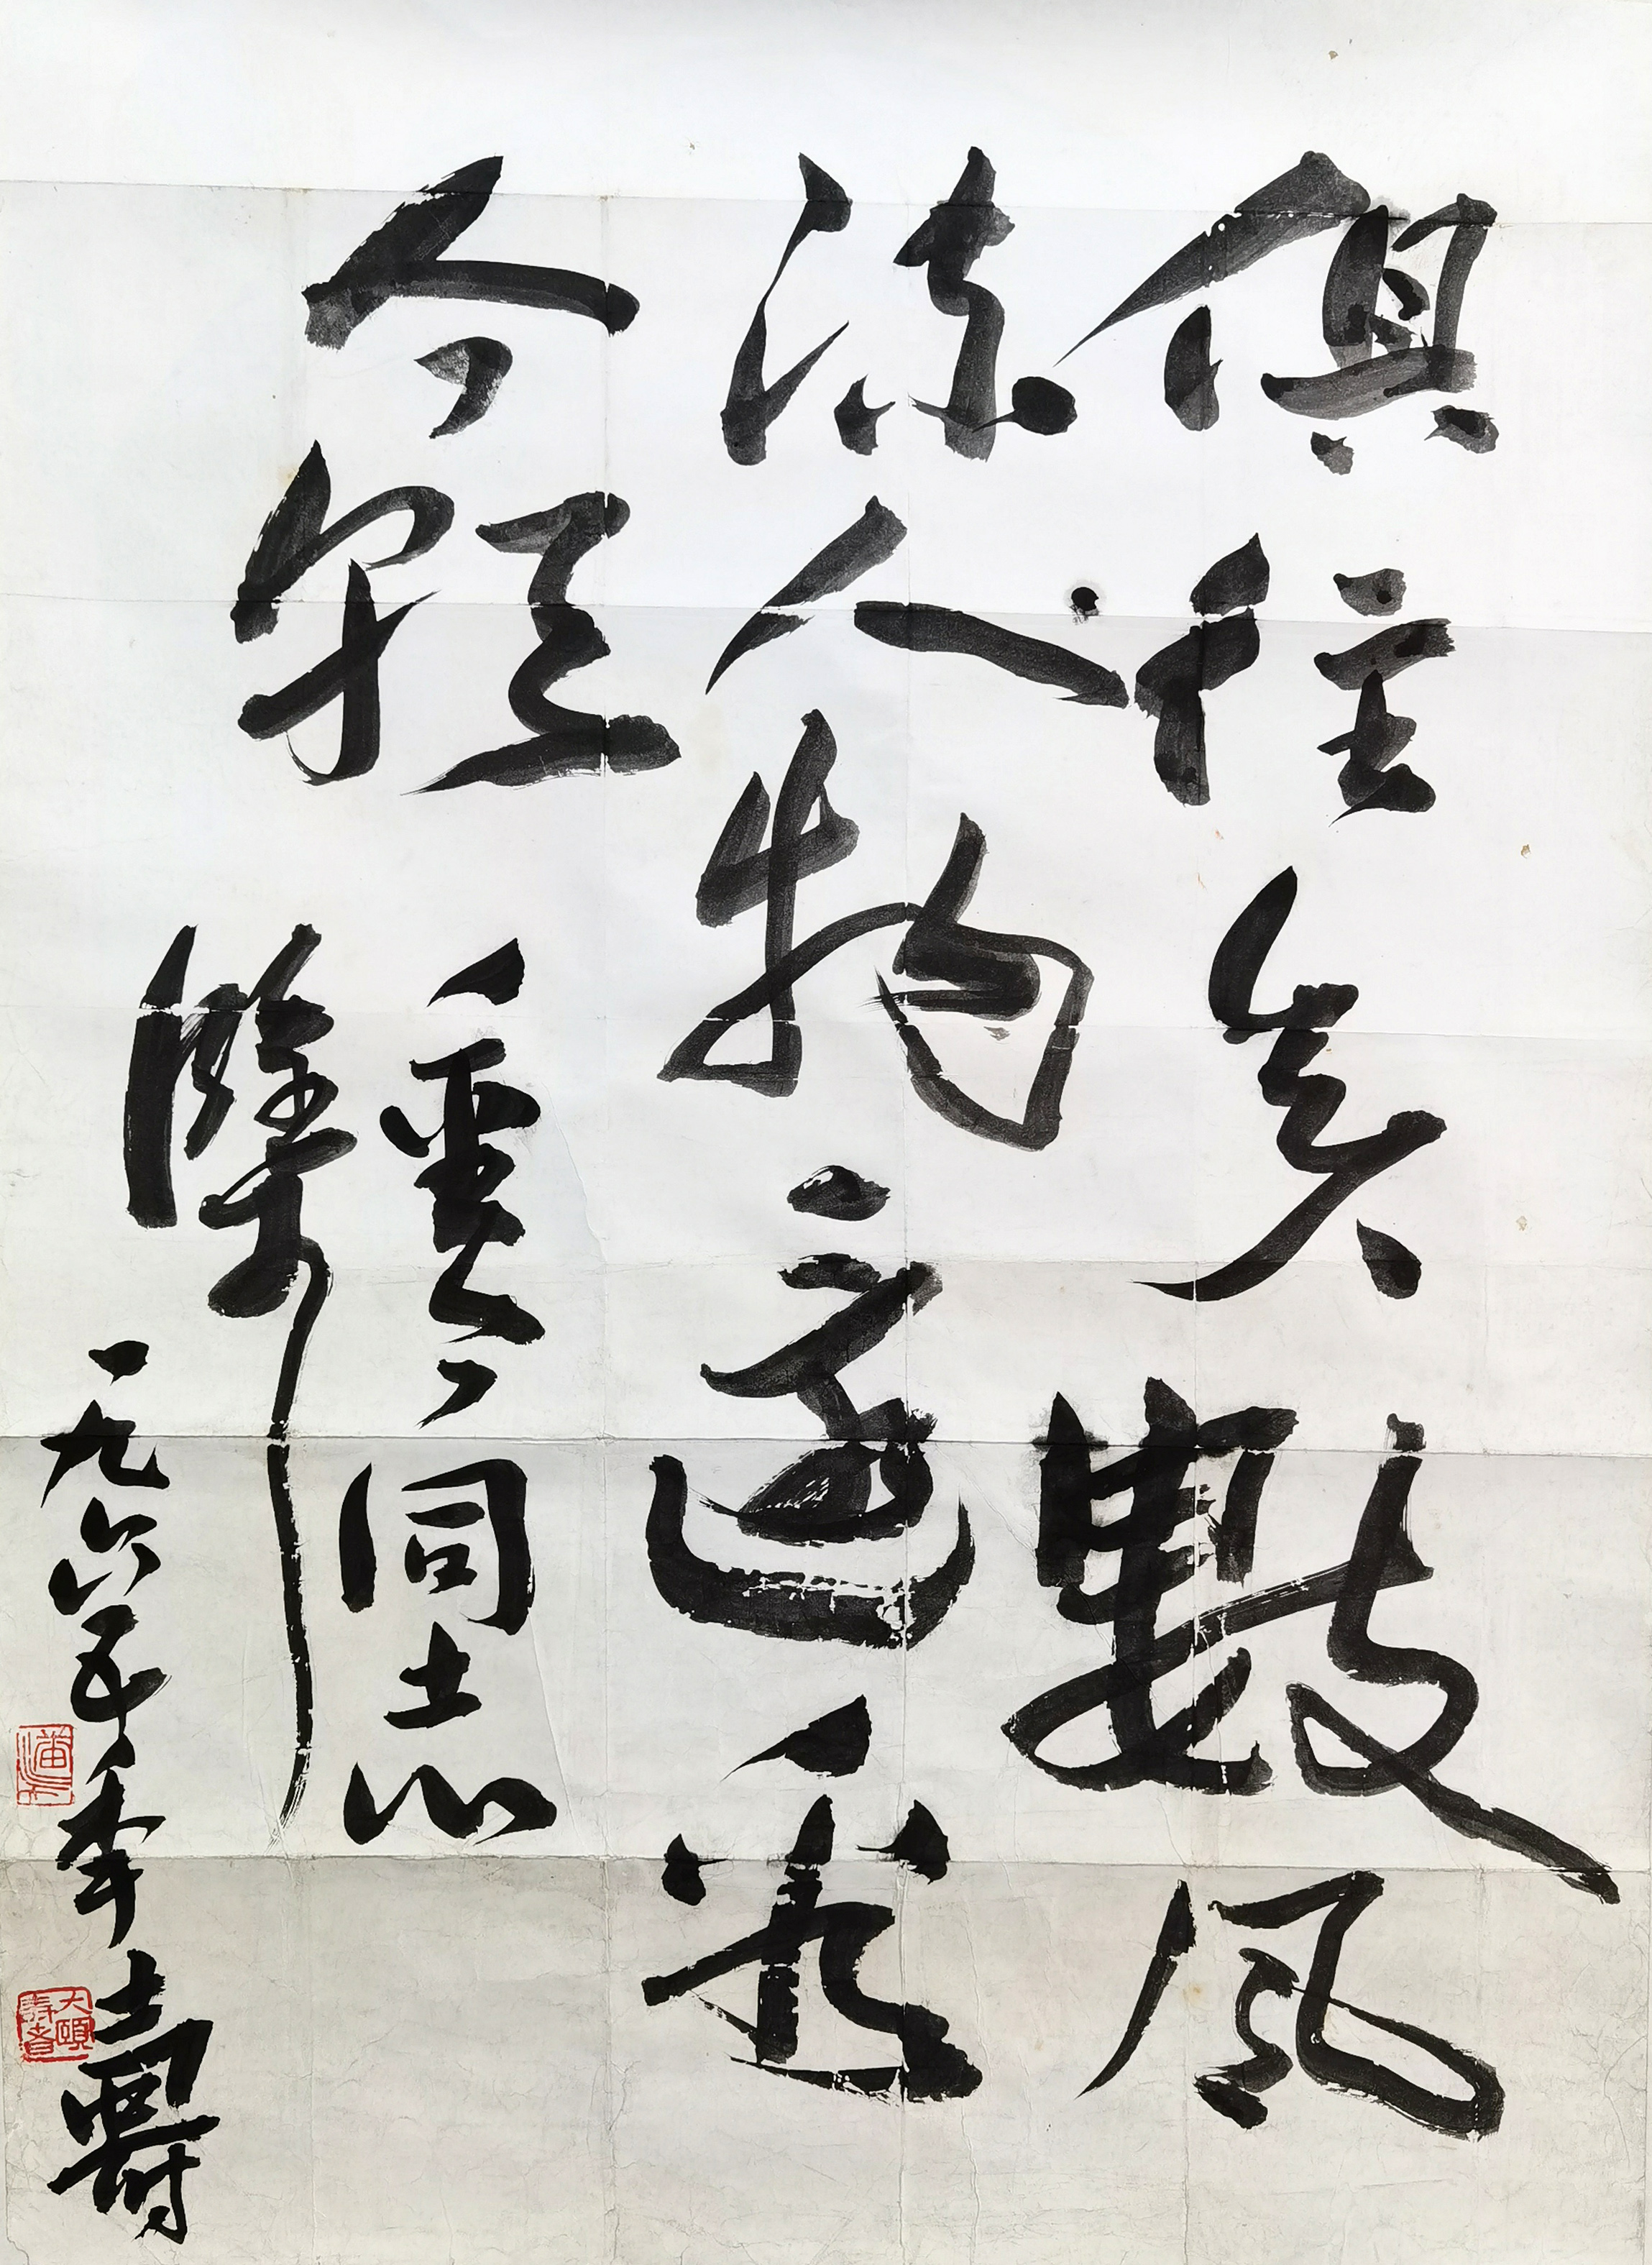 俱往矣數風
流人物還看
今朝
重賢同志
一九六五年 壽
潘
大頤壽者